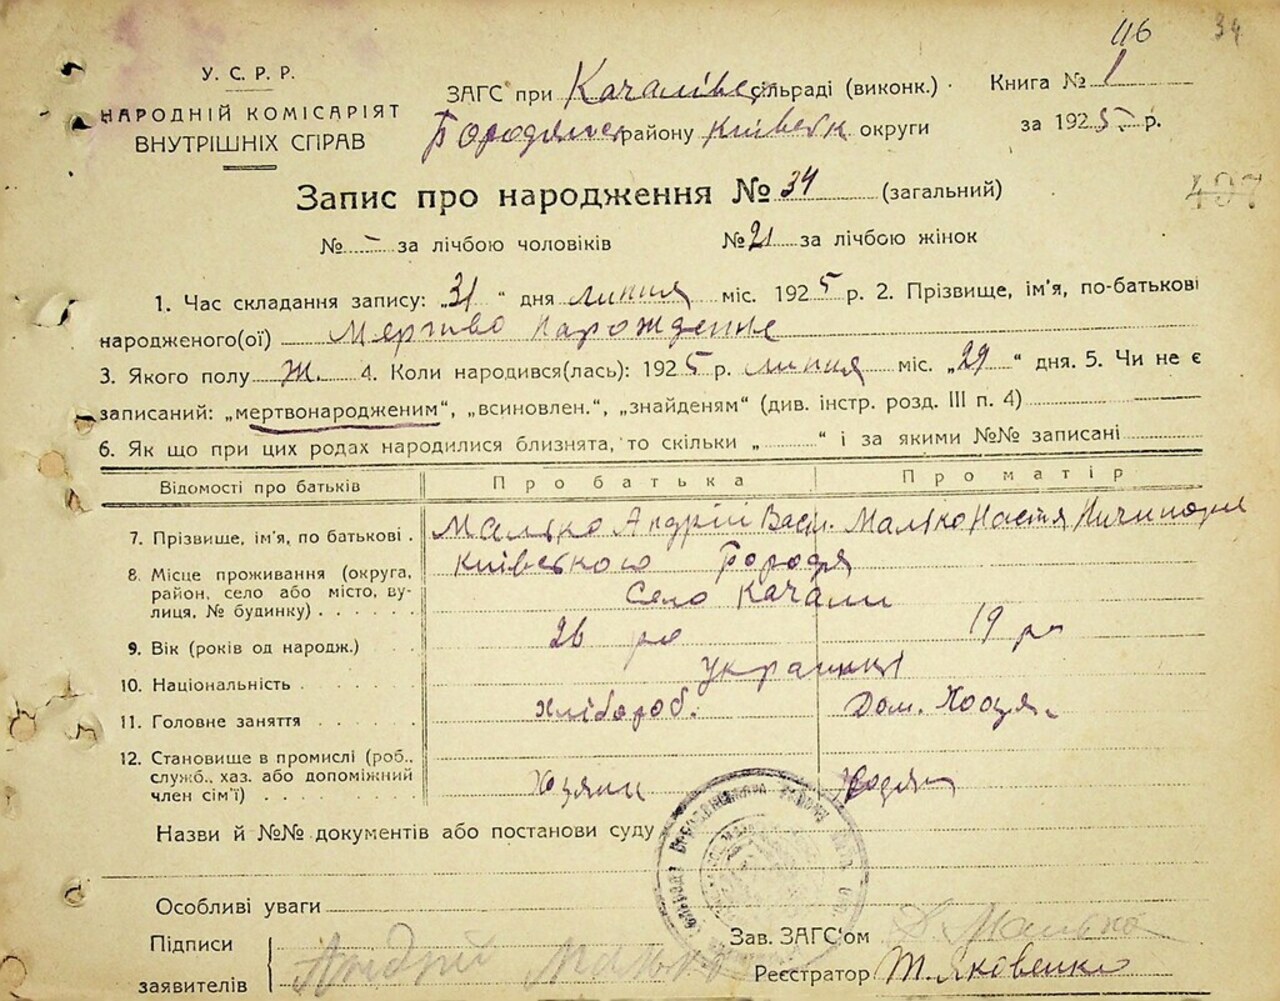 116 34
У. С. Р. Р.
НАРОДНІЙ КОМІСАРІЯТ
ВНУТРІШНІХ СПРАВ
ЗАГС при Качалівск сільраді (виконк.) Книга № 1
Бородянск району Київськ округи за 1925 р.
Запис про народження № 34 (загальний)
497
№ – за лічбою чоловіків № 21 за лічбою жінок
1. Час складання запису: „31“ дня липня міс. 1925 р. 2. Прізвище, ім'я, по-батькові
народженого(ої) Мертво нарожденне
3. Якого полу Ж. 4. Коли народився(лась): 1925 р. липня міс. „29“ дня. 5. Чи не є
записаний: „мертвонародженим“, „всиновлен.“, „знайденям“ (див. інстр. розд. III п. 4)
6. Як що при цих родах народилися близнята, то скільки „ “ і за якими №№ записані
Відомості про батьків Про батька Про матір
7. Прізвище, ім'я, по батькові . Малько Андрій Васи. Малько Настя Ничипор
8. Місце проживання (округа, Київського Бородя
район, село або місто, ву-
лиця, № будинку) . . . . . . Село Качали
9. Вік (років од народж.) . . . . 26 ро 19 ро
10. Національність . . . . . . українці
11. Головне заняття . . . . . . хлібороб. Дом. Хозя
12. Становище в промислі (роб.,
служб., хаз. або допоміжний
член сім'ї) . . . . . . . . . Хозяин
Назви й №№ документів або постанови суду
Особливі уваги
Підписи
заявителів Андрій Малько
Зав. ЗАГС'ом Малько
Реєстратор Т. Яковенко